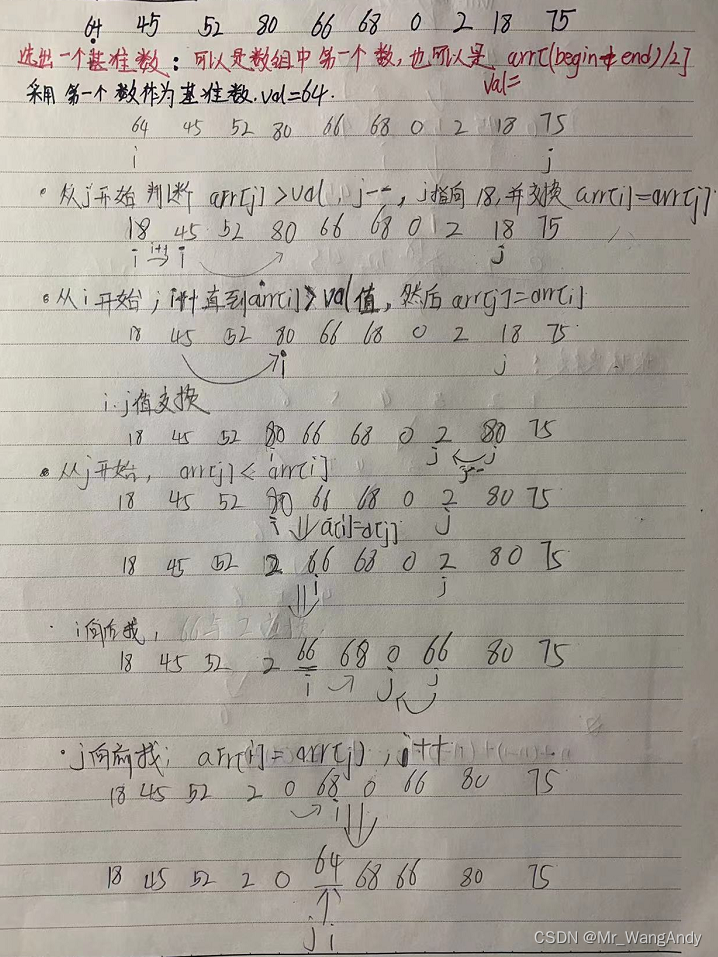 64 45 52 80 66 68 0 2 18 75
选出一个基准数：可以是数组中第一个数，也可以是 arr[(begin+end)/2]
val=
采用第一个数作为基准数.val=64.
64 45 52 80 66 68 0 2 18 75
i j
• 从j开始判断 arr[j]>val, j--, j指向18,并交换 arr[i]=arr[j]
18 45 52 80 66 68 0 2 18 75
i i++ i j
• 从i开始, i++直到arr[i]>val值, 然后arr[j]=arr[i]
18 45 52 80 66 68 0 2 18 75
i j
i.j值交换
18 45 52 80 66 68 0 2 80 75
i j j-- j
• 从j开始, arr[j]<arr[i]
18 45 52 80 66 68 0 2 80 75
i a[i]=a[j] j
18 45 52 2 66 68 0 2 80 75
i j
· i向后找,
18 45 52 2 66 68 0 66 80 75
i j j
• j向前找; arr[i]=arr[j], i++
18 45 52 2 0 68 0 66 80 75
i
18 45 52 2 0 64 68 66 80 75
j i
CSDN @Mr_WangAndy